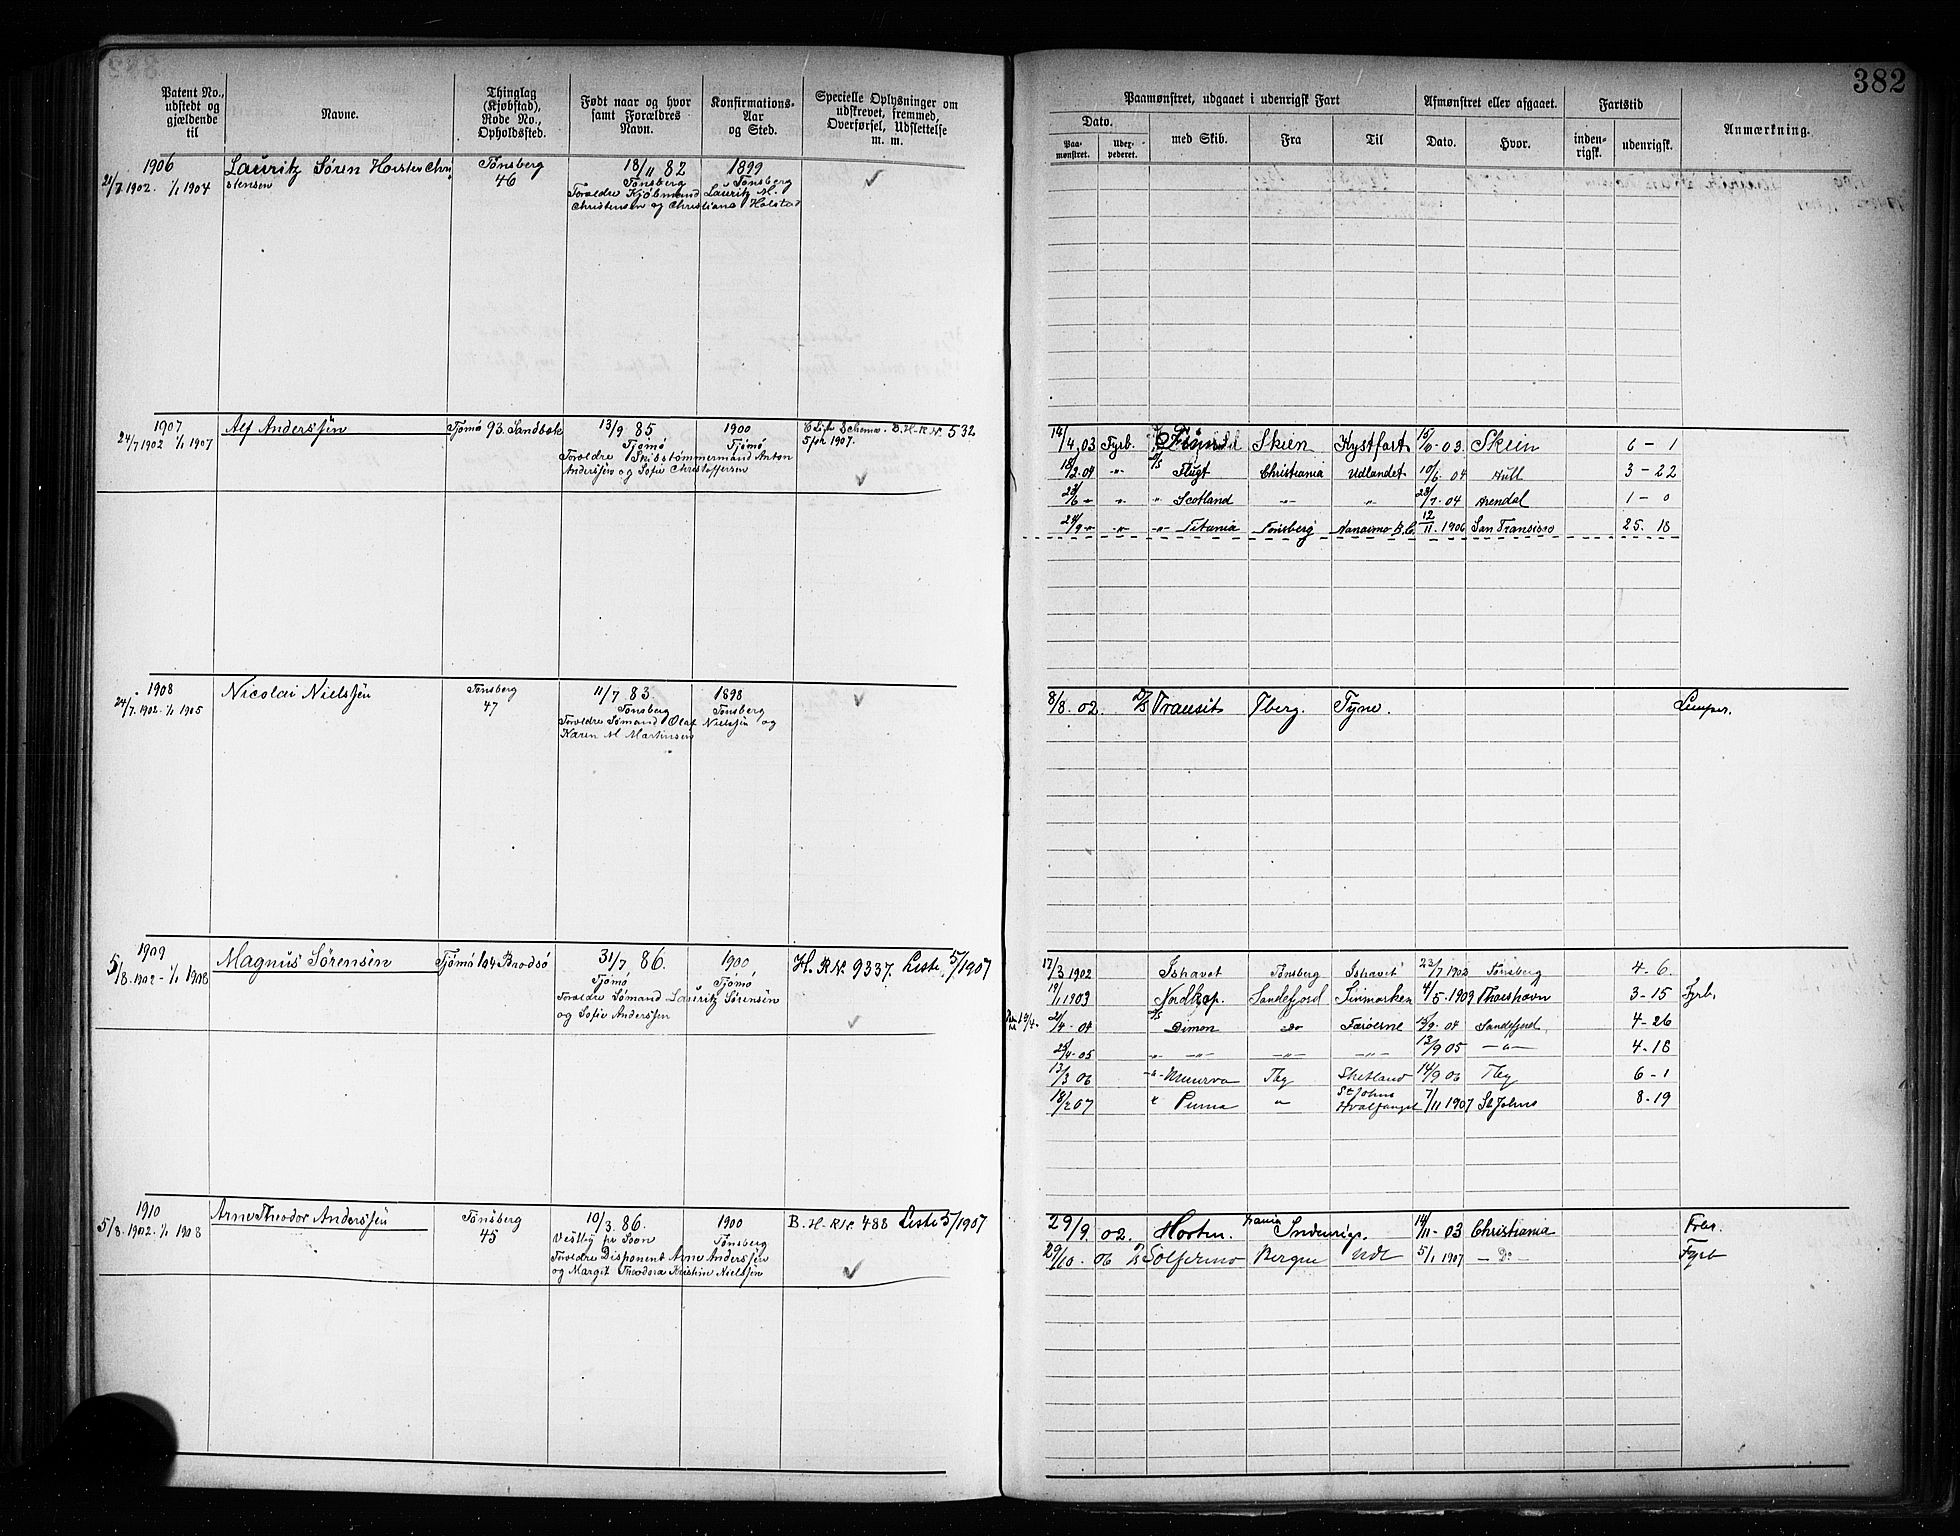 382
Patent No., udstedt og gjældende til
Navne.
Thinglag (Kjøbstad), Rode No., Opholdssted.
Født naar og hvor samt Forældres Navn.
Konfirmations-Aar og Sted.
Specielle Oplysninger om udskrevet, fremmed, Overførsel, Udslettelse m. m.
Paamønstret, udgaaet i udenrigsk Fart
Afmønstret eller afgaaet.
Fartstid
Anmærkning.
Dato.
Paamønstret.
med Skib.
Fra
Til
Dato.
Hvor.
indenrigsk.
udenrigsk.
1906
21/7 1902. 1/1 1904
Lauritz Søren
Tønsberg
46
18/11 82
Tønsberg
Forældre Kjøbmand Lauritz M.
Christensen og Christiane Holstad
1899
Tønsberg
1907
24/7 1902 1/1 1907
Alf Anderssen
Tjømø 93. Sandbæk
13/9 85
Tjømø
Forældre Skibstømmermand Anton
Anderssen og Sofie Christoffersen
1900
Tjømø
532
5 for 1907.
14/4 03 Fyrb. Skien Kystfart 15/6 03. Skien 6 - 1
15/2 04 " Flugt Christiania Udlandet 10/6 04 Hull 3 - 22
" " Scotland " " 23/7 04 Arendal 1 - 0
24/9 " " " Titania Tønsberg Nanaimo B.C. 12/11 1906 San Fransisco 25. 18
1908
24/7 1902. 1/1 1905
Nicolai Nielssen
Tønsberg
47
11/7 83.
Tønsberg
Forældre Sømand Olaf Nielssen og
Karen M Martinsen
1898
Tønsberg
8/8. 02. D/S Transit Tberg. Tyne. Lemper.
1909
5/8. 1902 - 1/1 1908
Magnus Sørensen
Tjømø 104 Brødsø
31/7 86.
Tjømø
Forældre Sømand Lauritz Sørensen
og Sofie Anderssen
1900
Tjømø
H. R N. 9337. Liste 5/1907
17/3 1902 Ishavet Tønsberg Ishavet 23/7 1902 Tønsberg 4- 6
19/1 1903 Nordkap. Sandefjord Finmarken 4/5 1903 Thorshavn 3 - 15 Fyrb.
21/4 - 04 D/S Dimon Do Færøerne 15/9 - 04 Sandefjord 4 - 26
25/4 - 05 " - " - - " - - " - 12/9 05 - " - 4 - 18
13/3 06 - " - Minerva Tbg Shetland 14/9 06 Tbg 6 - 1
18/2 07 " Puma " St Johns Hvalfanget 7/11 1907 St Johns 8 - 19
1910
5/8. 1902. 1/1 1908
Arne Theodor Anderssen
Tønsberg
45
10/3. 86.
Vestby pr Soon
Forældre Disponent Arne Anderssen
og Margit Theodora Kristine Nielssen
1900
Tønsberg
B. H- R N. 488 Liste 5/1907
29/9 02. Horten. Indenrigs. 14/11 - 03 Christiania
29/10. 06 D/S Solferino Bergen Udl 5/1 1907 - Do - Fyrb